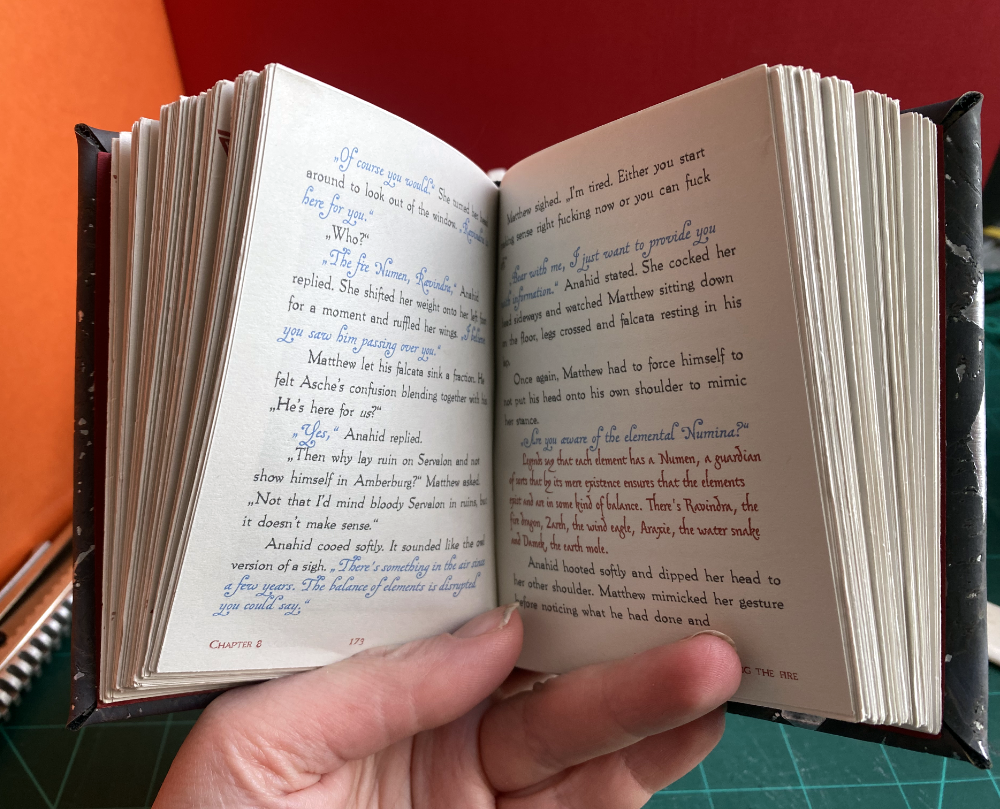 „Of course you would.“ She turned her
around to look out of the window. „Ravindra is
here for you.“
„Who?“
„The fire Numen, Ravindra,“ Anahid
replied. She shifted her weight onto her left
for a moment and ruffled her wings. „I believe
you saw him passing over you.“
Matthew let his falcata sink a fraction. He
felt Asche's confusion blending together with his
„He's here for us?“
„Yes,“ Anahid replied.
„Then why lay ruin on Servalon and not
show himself in Amberburg?“ Matthew asked.
„Not that I'd mind bloody Servalon in ruins, but
it doesn't make sense.“
Anahid cooed softly. It sounded like the owl
version of a sigh. „There's something in the air since
a few years. The balance of elements is disrupted
you could say.“
CHAPTER 8 173
Matthew sighed. „I'm tired. Either you start
sense right fucking now or you can fuck
„Bear with me, I just want to provide you
with information.“ Anahid stated. She cocked her
head sideways and watched Matthew sitting down
on the floor, legs crossed and falcata resting in his
Once again, Matthew had to force himself to
not put his head onto his own shoulder to mimic
her stance.
„Are you aware of the elemental Numina?“
Legends say that each element has a Numen, a guardian
of sorts that by its mere existence ensures that the elements
exist and are in some kind of balance. There's Ravindra, the
fire dragon, Zarth, the wind eagle, Araxie, the water snake
and Damek, the earth mole.
Anahid hooted softly and dipped her head to
her other shoulder. Matthew mimicked her gesture
before noticing what he had done and
THE FIRE